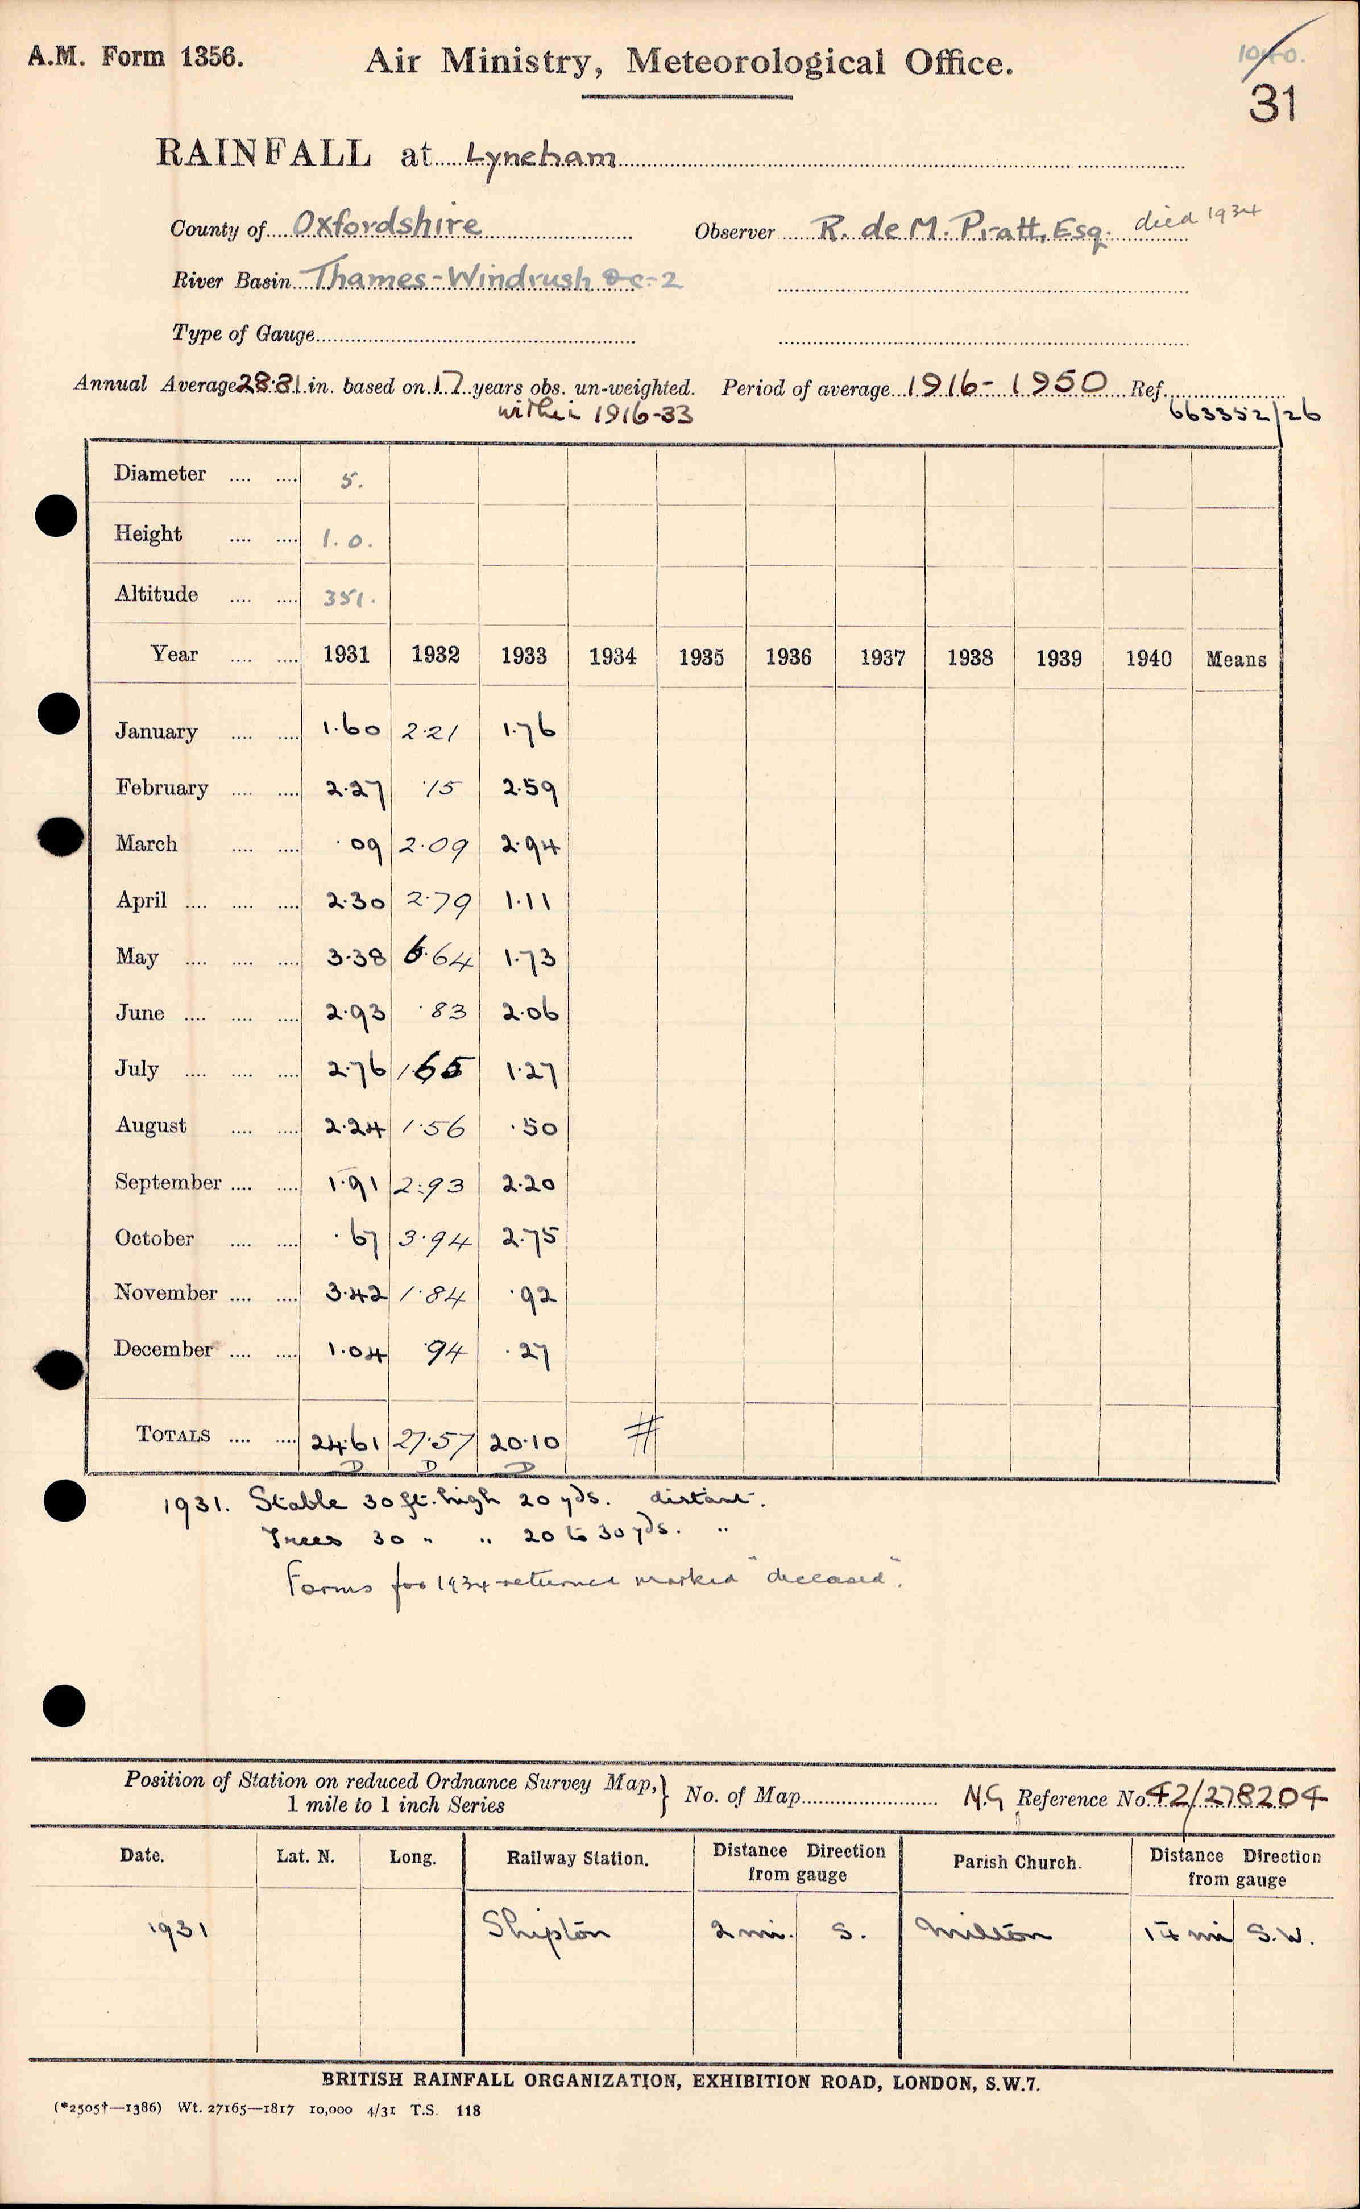 A.M. Form 1356.
Air Ministry, Meteorological Office.
1040.
31
RAINFALL at Lyneham
County of Oxfordshire Observer R. de M. Pratt, Esq. died 1934
River Basin Thames-Windrush &c-2
Type of Gauge
Annual Average 28.81 in. based on 17 years obs. un-weighted. Period of average 1916-1950 Ref.
within 1916-33 663352/26
Diameter .... .... 5.
Height .... .... 1.0.
Altitude .... .... 351.
Year .... .... 1931 1932 1933 1934 1935 1936 1937 1938 1939 1940 Means
January .... .... 1.60 2.21 1.76
February .... .... 2.27 .15 2.59
March .... .... .09 2.09 2.94
April .... .... .... 2.30 2.79 1.11
May .... .... .... 3.38 6.64 1.73
June .... .... .... 2.93 .83 2.06
July .... .... .... 2.76 1.65 1.27
August .... .... 2.24 1.56 .50
September .... .... 1.91 2.93 2.20
October .... .... .67 3.94 2.75
November .... .... 3.42 1.84 .92
December .... .... 1.04 .94 .27
TOTALS .... .... 24.61 27.57 20.10 #
D D D
1931. Stable 30 ft. high 20 yds. distant.
Trees 30 " " 20 to 30 yds. "
Forms for 1934 returned marked "deceased".
Position of Station on reduced Ordnance Survey Map, 1 mile to 1 inch Series } No. of Map N.G. Reference No. 42/278204
Date. Lat. N. Long. Railway Station. Distance Direction from gauge Parish Church. Distance Direction from gauge
1931 Shipton 2 mi. S. Milton mi S.W.
BRITISH RAINFALL ORGANIZATION, EXHIBITION ROAD, LONDON, S.W.7.
(*2505†—1386) Wt. 27165—1817 10,000 4/31 T.S. 118